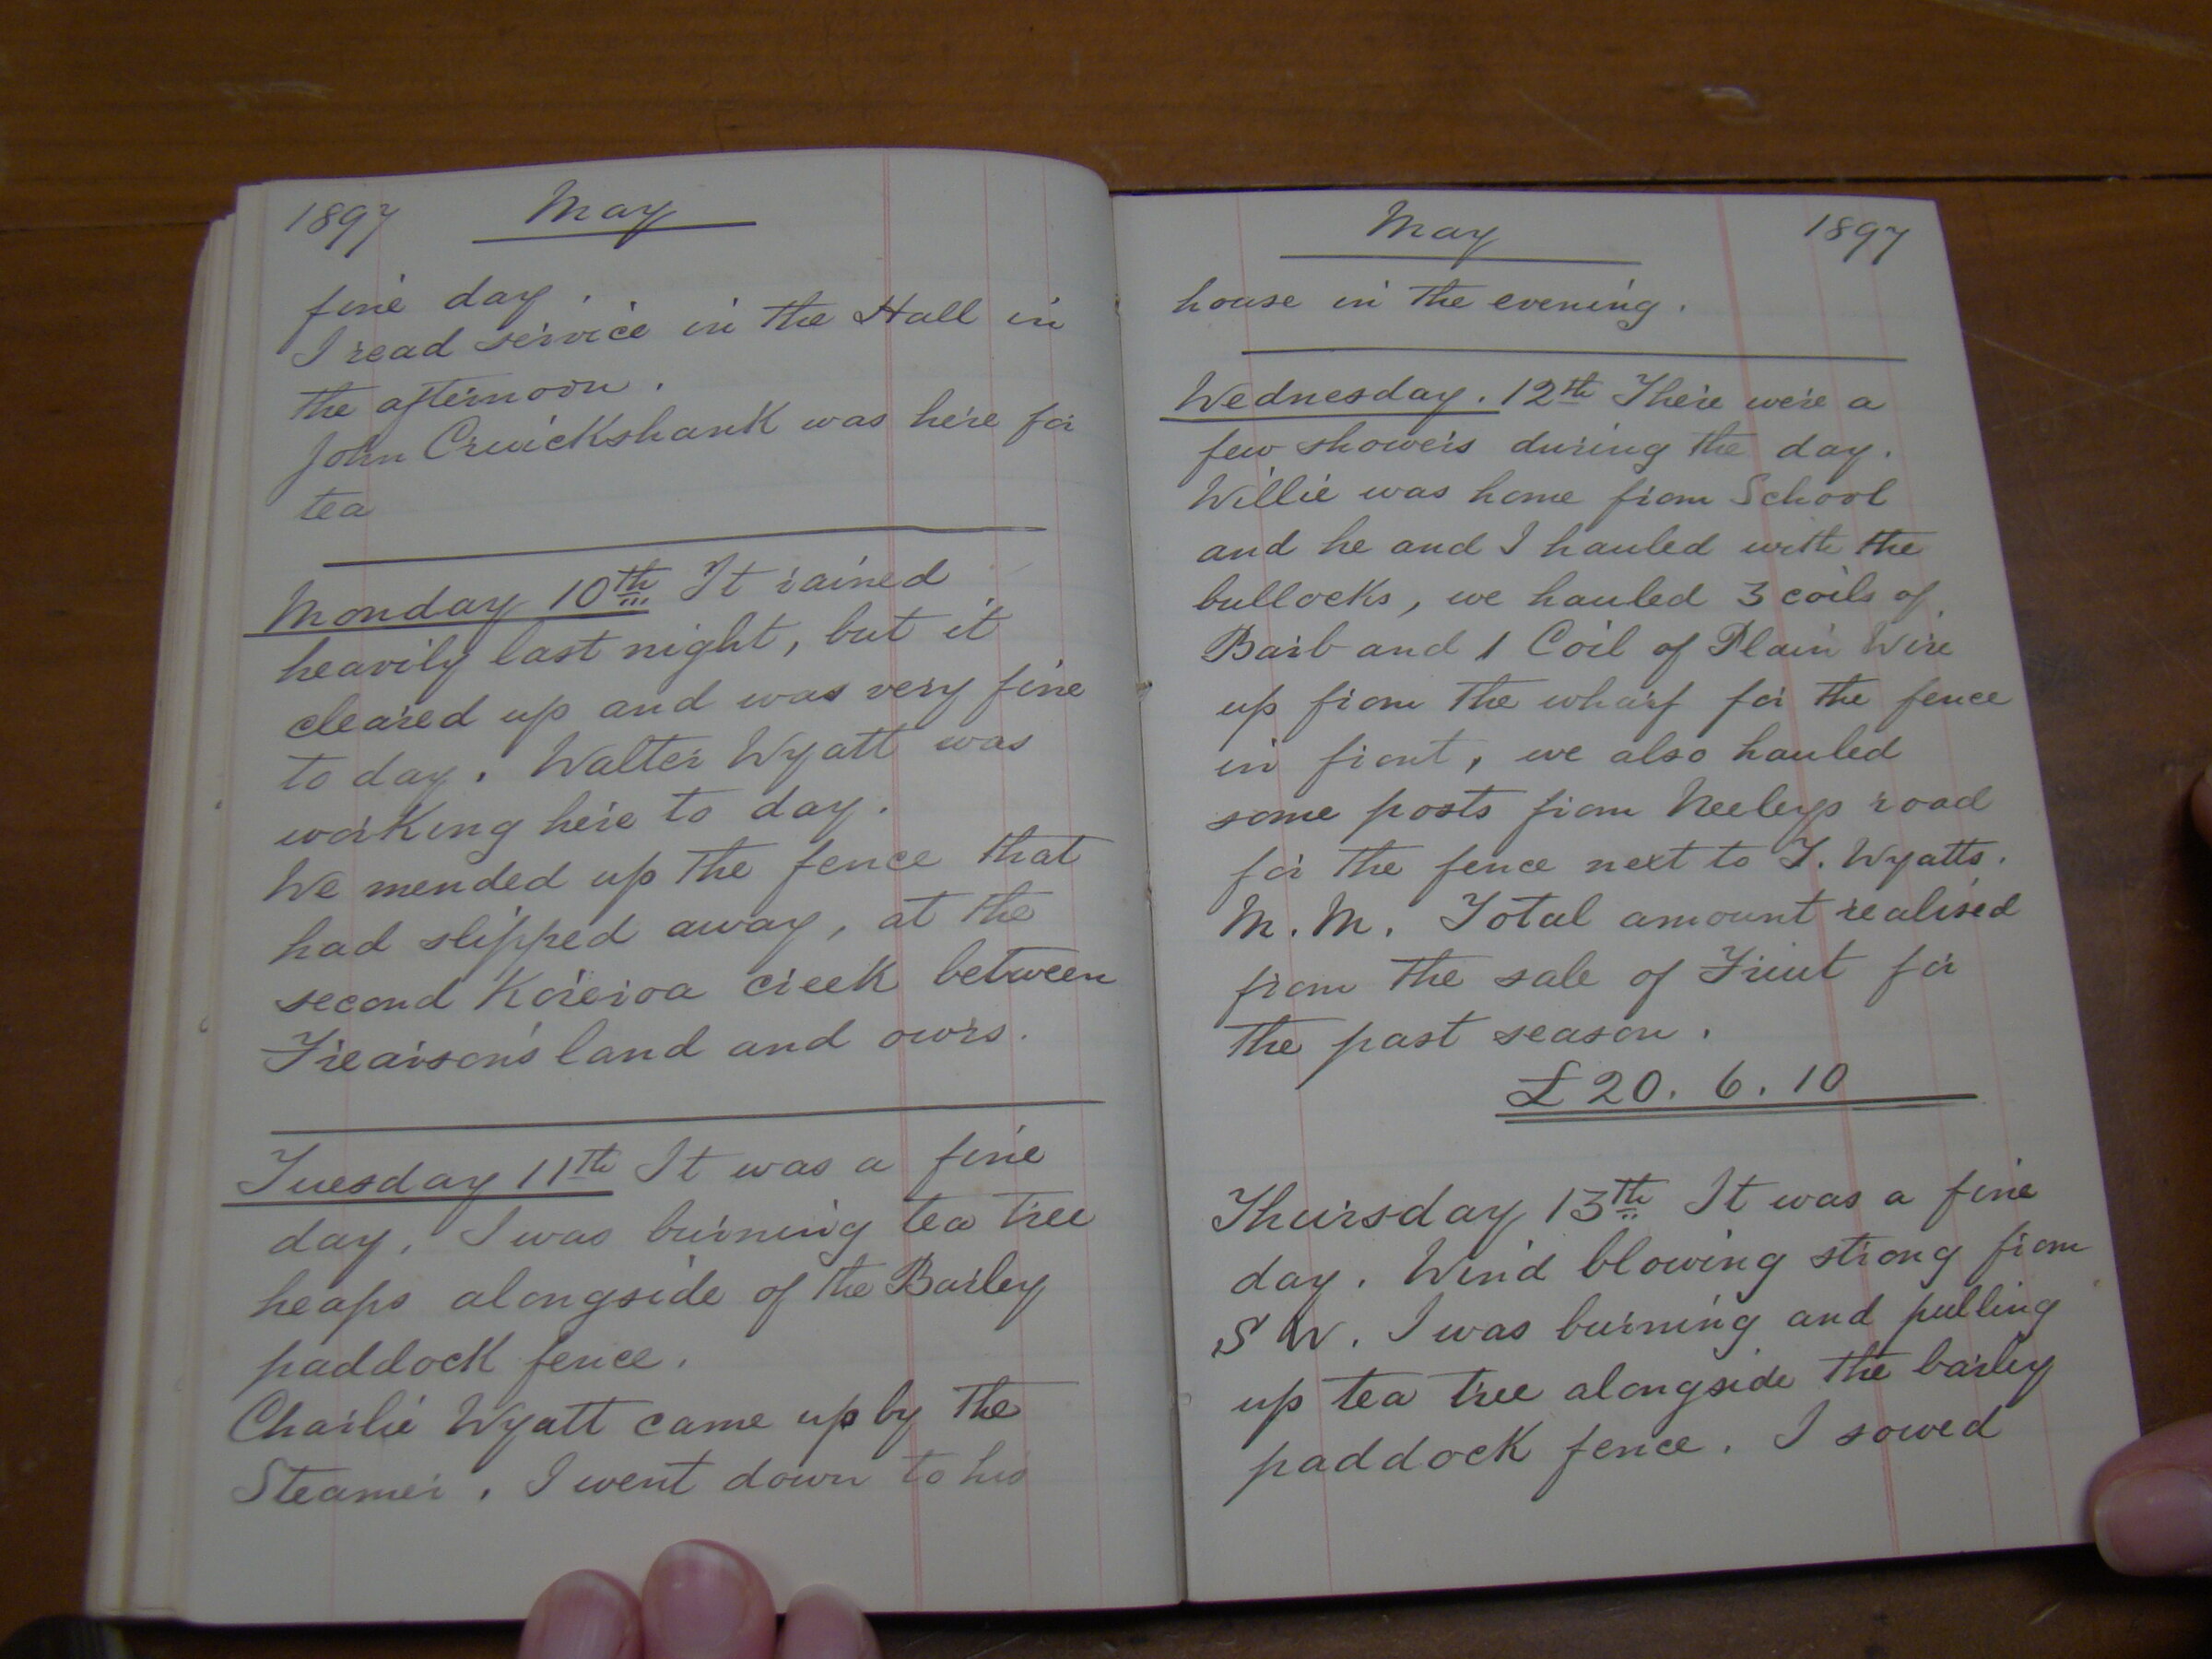 1897 May
fine day.
I read service in the Hall in
the afternoon.
John Cruickshank was here for
tea
Monday 10th It rained
heavily last night, but it
cleared up and was very fine
to day. Walter Wyatt was
working here to day.
We mended up the fence that
had slipped away, at the
second Koreroa creek between
Frearson's land and ours.
Tuesday 11th It was a fine
day. I was burning tea tree
heaps alongside of the Barley
paddock fence.
Charlie Wyatt came up by the
Steamer. I went down to his
May 1897
house in the evening.
Wednesday. 12th There were a
few showers during the day.
Willie was home from School
and he and I hauled with the
bullocks, we hauled 3 coils of
Barb and 1 Coil of Plain Wire
up from the wharf for the fence
in front, we also hauled
some posts from Neeleys road
for the fence next to T. Wyatts.
M. M. Total amount realised
from the sale of Fruit for
the past season.
£20. 6. 10
Thursday 13th It was a fine
day. Wind blowing strong from
S W. I was burning and pulling
up tea tree alongside the barley
paddock fence. I sowed